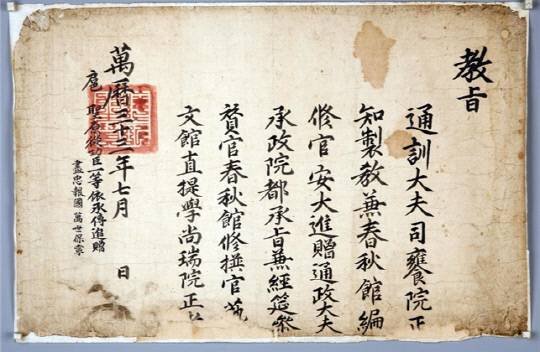 教旨
通訓大夫司饔院正
知製教兼春秋館編
修官 安大進贈通政大夫
承政院都承旨兼經筵參
贊官春秋館修撰官藝
文館直提學尚瑞院正
萬曆三十三年七月 日
扈 聖原從功臣一等依承傳追贈
盡忠報國 萬世保